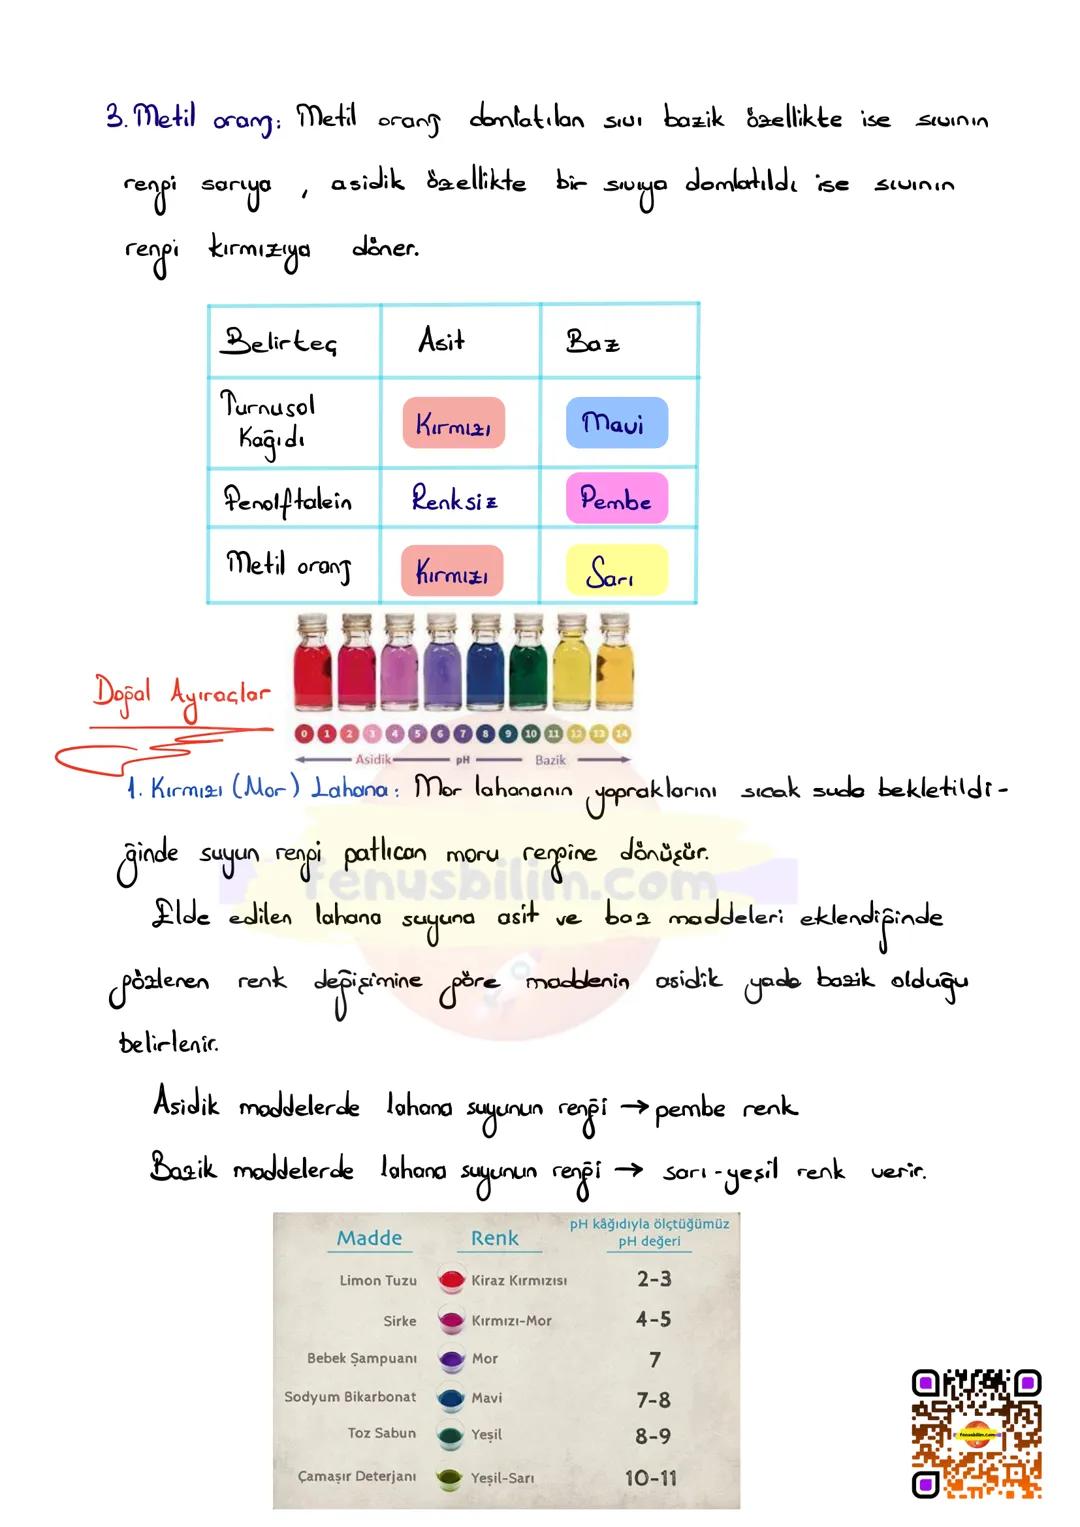 3. Metil oranj: Metil oranj damlatılan sıvı bazik özellikte ise sıvının
rengi sarıya , asidik özellikte bir sıvıya damlatıldı ise sıvının
rengi kırmızıya döner.
Belirteç Asit Baz
Turnusol Kağıdı Kırmızı Mavi
Fenolftalein Renksiz Pembe
Metil oranj Kırmızı Sarı
Doğal Ayıraçlar
0 1 2 3 4 5 6 7 8 9 10 11 12 13 14
Asidik pH Bazik
1. Kırmızı (Mor) Lahana: Mor lahananın yapraklarını sıcak suda bekletildi-
ğinde suyun rengi patlıcan moru rengine dönüşür.
fenusbilim.com
Elde edilen lahana suyuna asit ve baz maddeleri eklendiğinde
gözlenen renk değişimine göre maddenin asidik yada bazik olduğu
belirlenir.
Asidik maddelerde lahana suyunun rengi → pembe renk
Bazik maddelerde lahana suyunun rengi → sarı-yeşil renk verir.
Madde Renk pH kâğıdıyla ölçtüğümüz pH değeri
Limon Tuzu Kiraz Kırmızısı 2-3
Sirke Kırmızı-Mor 4-5
Bebek Şampuanı Mor 7
Sodyum Bikarbonat Mavi 7-8
Toz Sabun Yeşil 8-9
Çamaşır Deterjanı Yeşil-Sarı 10-11
fenusbilim.com